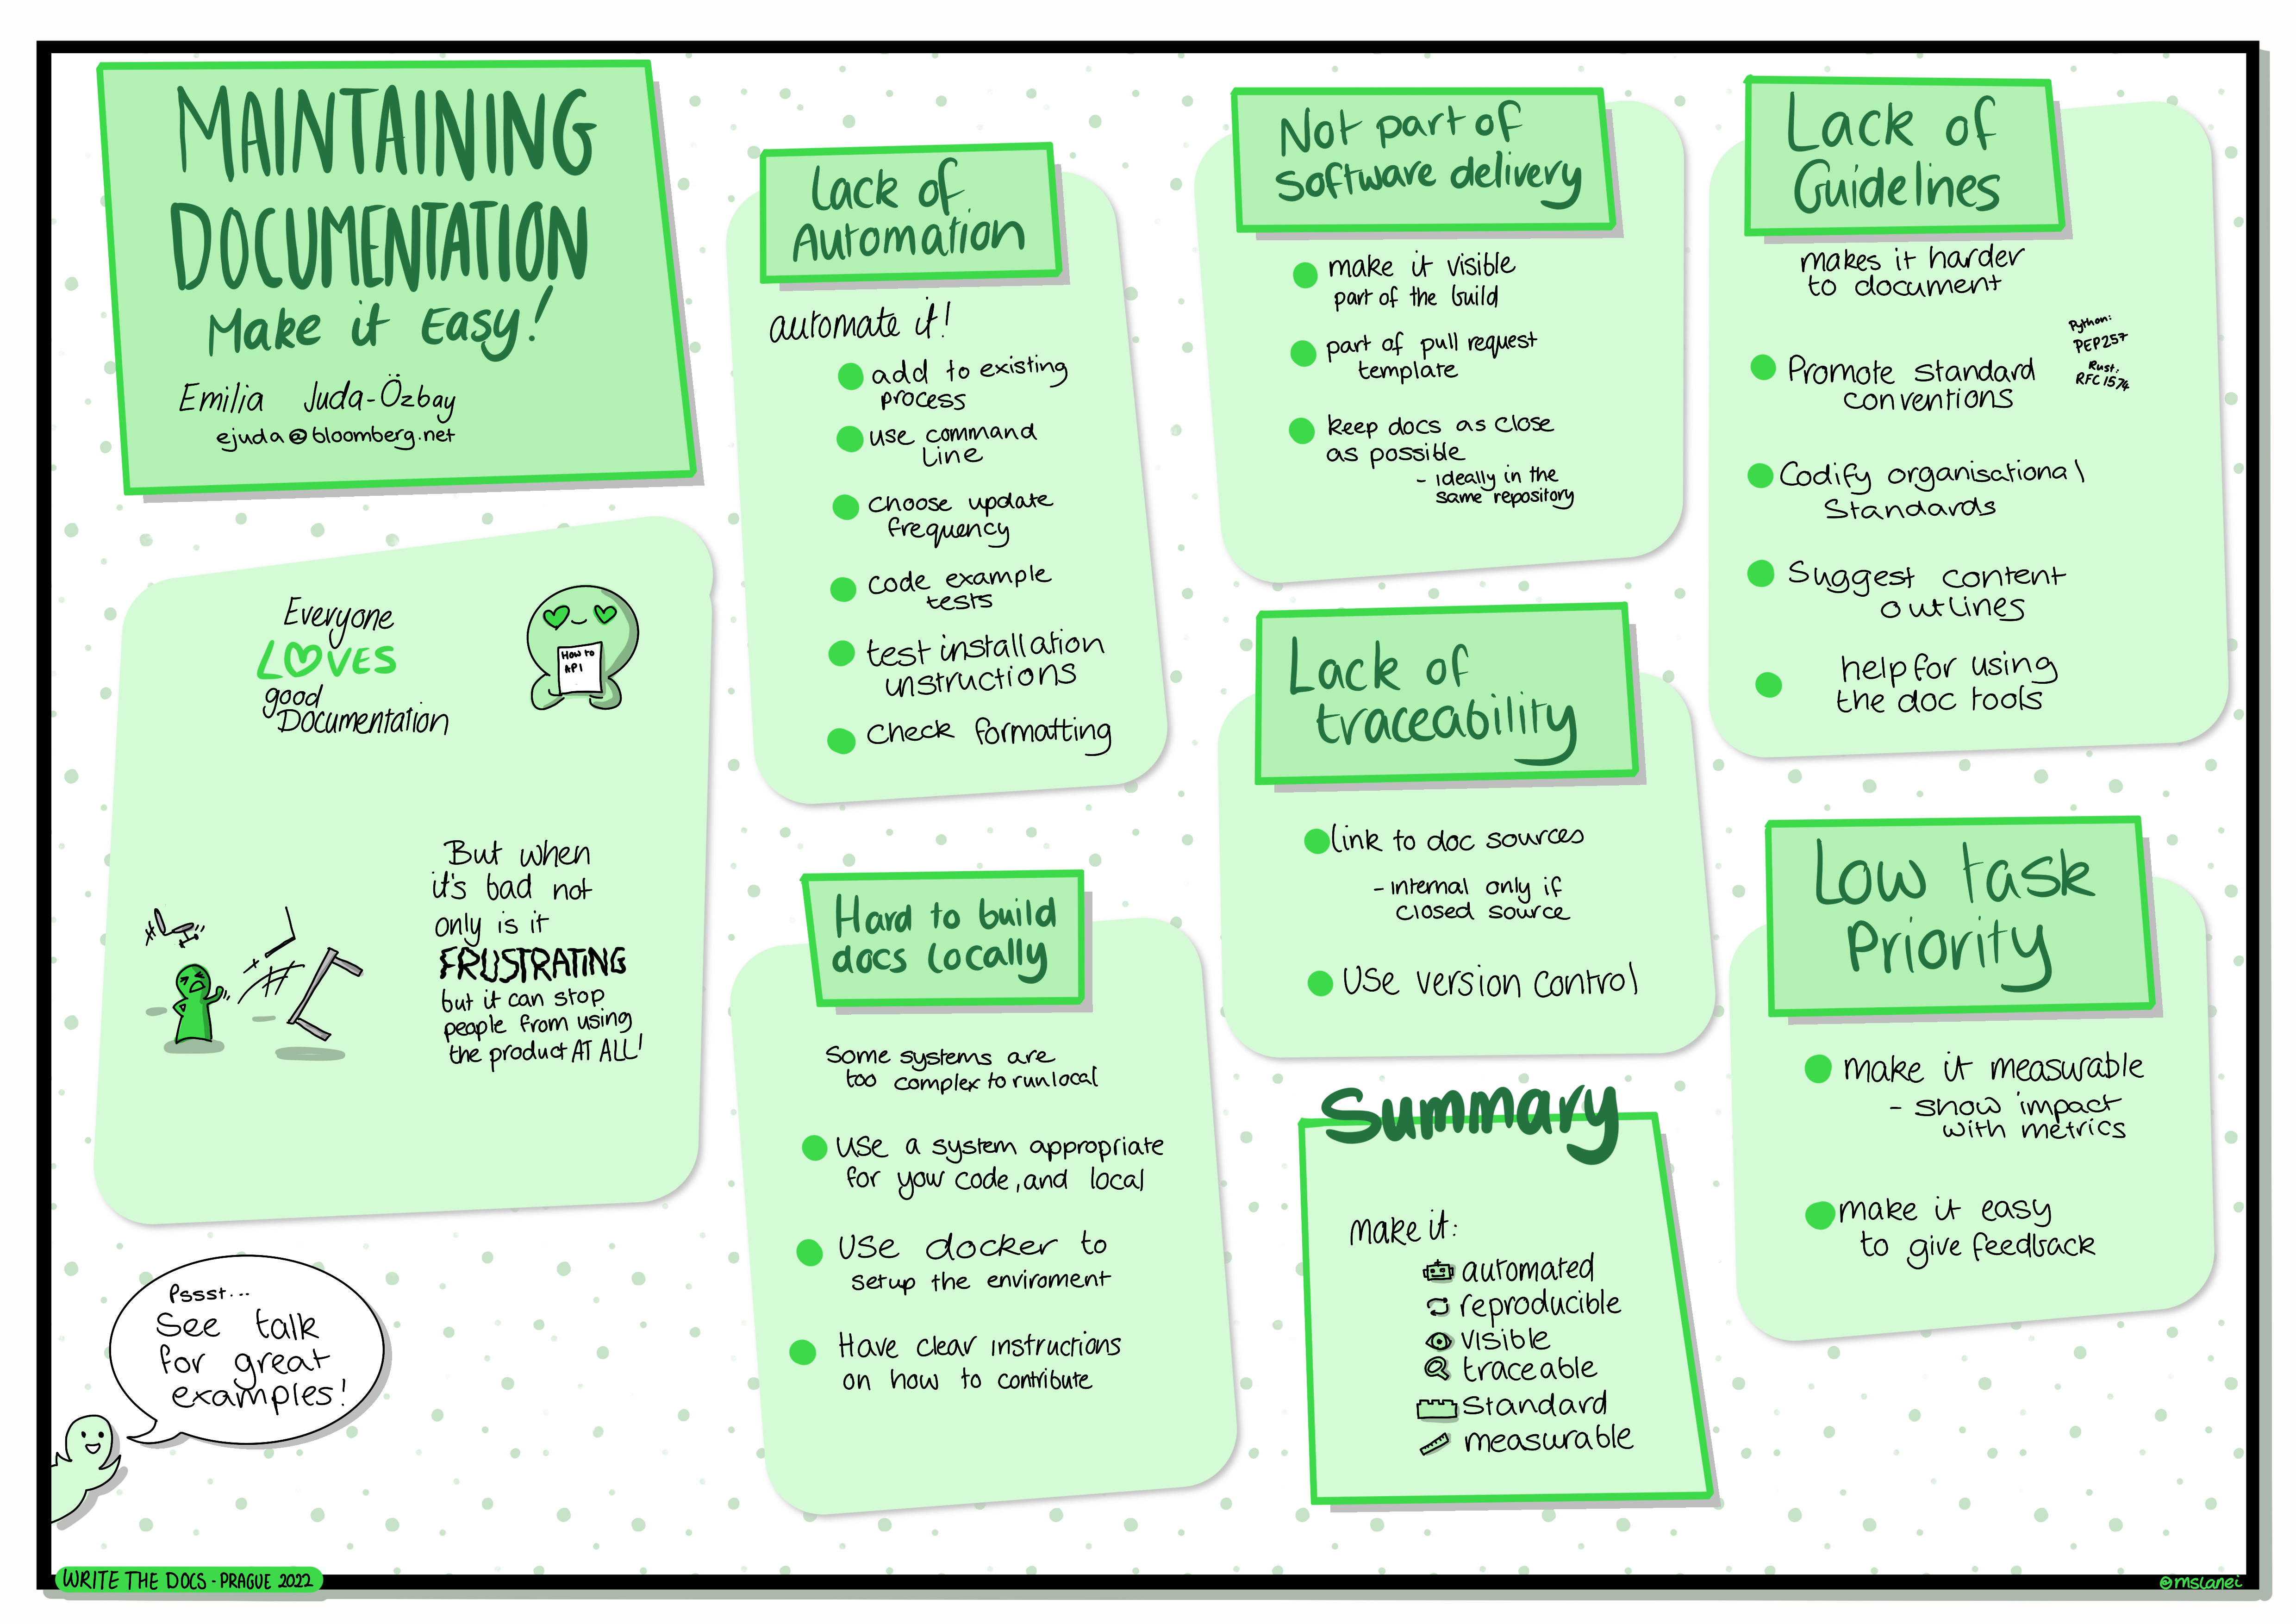 MAINTAINING
DOCUMENTATION
Make it Easy!
Emilia Juda-Özbay
ejuda@bloomberg.net
Everyone
LOVES
good
Documentation
How to
API
But when
it's bad not
only is it
FRUSTRATING
but it can stop
people from using
the product AT ALL!
Pssst...
See talk
for great
examples!
Lack of
Automation
automate it!
add to existing
process
use command
Line
choose update
frequency
code example
tests
test installation
instructions
check formatting
Hard to build
docs locally
Some systems are
too complex to run local
Use a system appropriate
for your code, and local
Use docker to
setup the enviroment
Have clear instructions
on how to contribute
Not part of
software delivery
make it visible
part of the build
part of pull request
template
keep docs as close
as possible
- ideally in the
same repository
Lack of
traceability
link to doc sources
- internal only if
closed source
Use version control
Summary
make it:
automated
reproducible
visible
traceable
Standard
measurable
Lack of
Guidelines
makes it harder
to document
Python:
PEP257
Rust:
RFC1574
Promote standard
conventions
Codify organisational
Standards
Suggest content
outlines
help for using
the doc tools
Low task
Priority
make it measurable
- show impact
with metrics
make it easy
to give feedback
WRITE THE DOCS - PRAGUE 2022
@mslanei